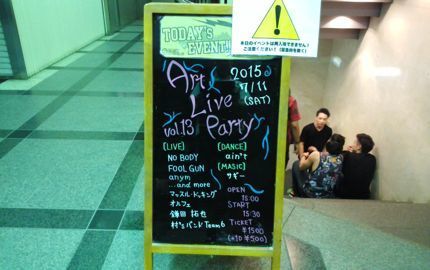 TODAY'S
EVENT!!
本日のイベントは再入場できません!
ご注意ください!
Art
Live
Party
vol.13
2015
7/11
(SAT)
[LIVE]
NO BODY
FOOL GUN
anym
...and more
マッスル・ドッキング
オルフェ
鎌田 拓也
村's バンド Team6
[DANCE]
ain't
[MASIC]
サギー
OPEN
15:00
START
15:30
TICKET
¥1500
(+1D ¥500)